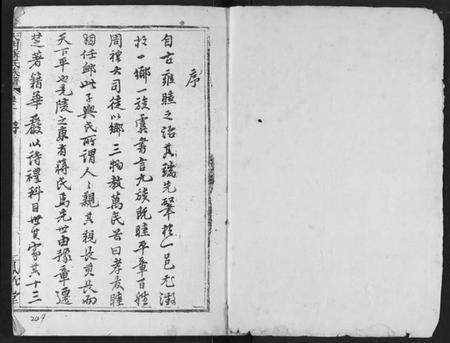 序
自古雍睦之治其端先肇於一邑尤徵
於一鄉一族虞書言九族既睦平章百姓
周禮大司徒以鄉三物教萬民而曰孝友睦
婣任卹此子輿氏所謂人人親其親長其長而
天下平也
陵之東有蔣氏焉先世由豫章遷
楚著籍華
以詩禮科目世其家其十三
序
204